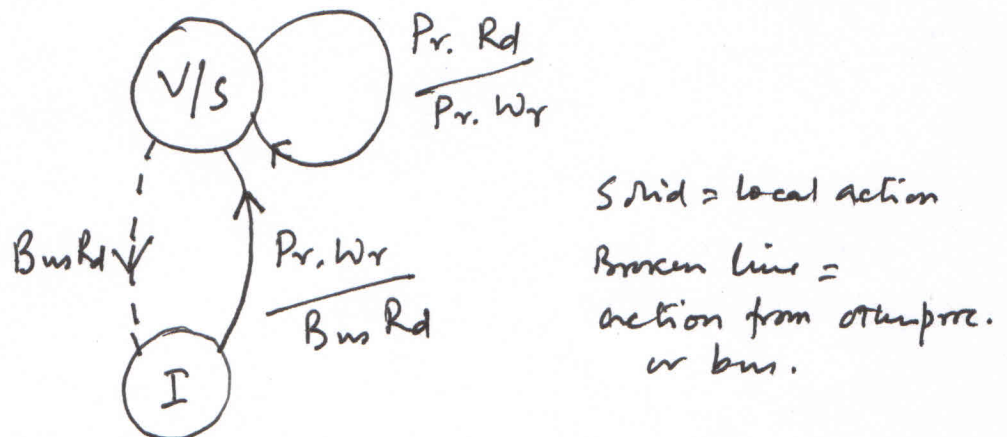 V/S
Pr. Rd
Pr. Wr
Bus Rd
Pr. Wr
Bus Rd
I
Solid = local action
Broken line =
action from other proc.
or bus.